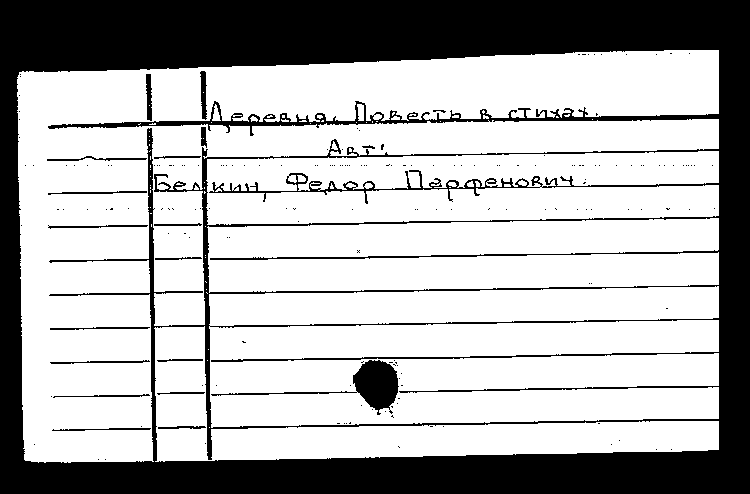 Деревня. Повесть в стихах.
Авт:
Белкин, Федор Парфенович.